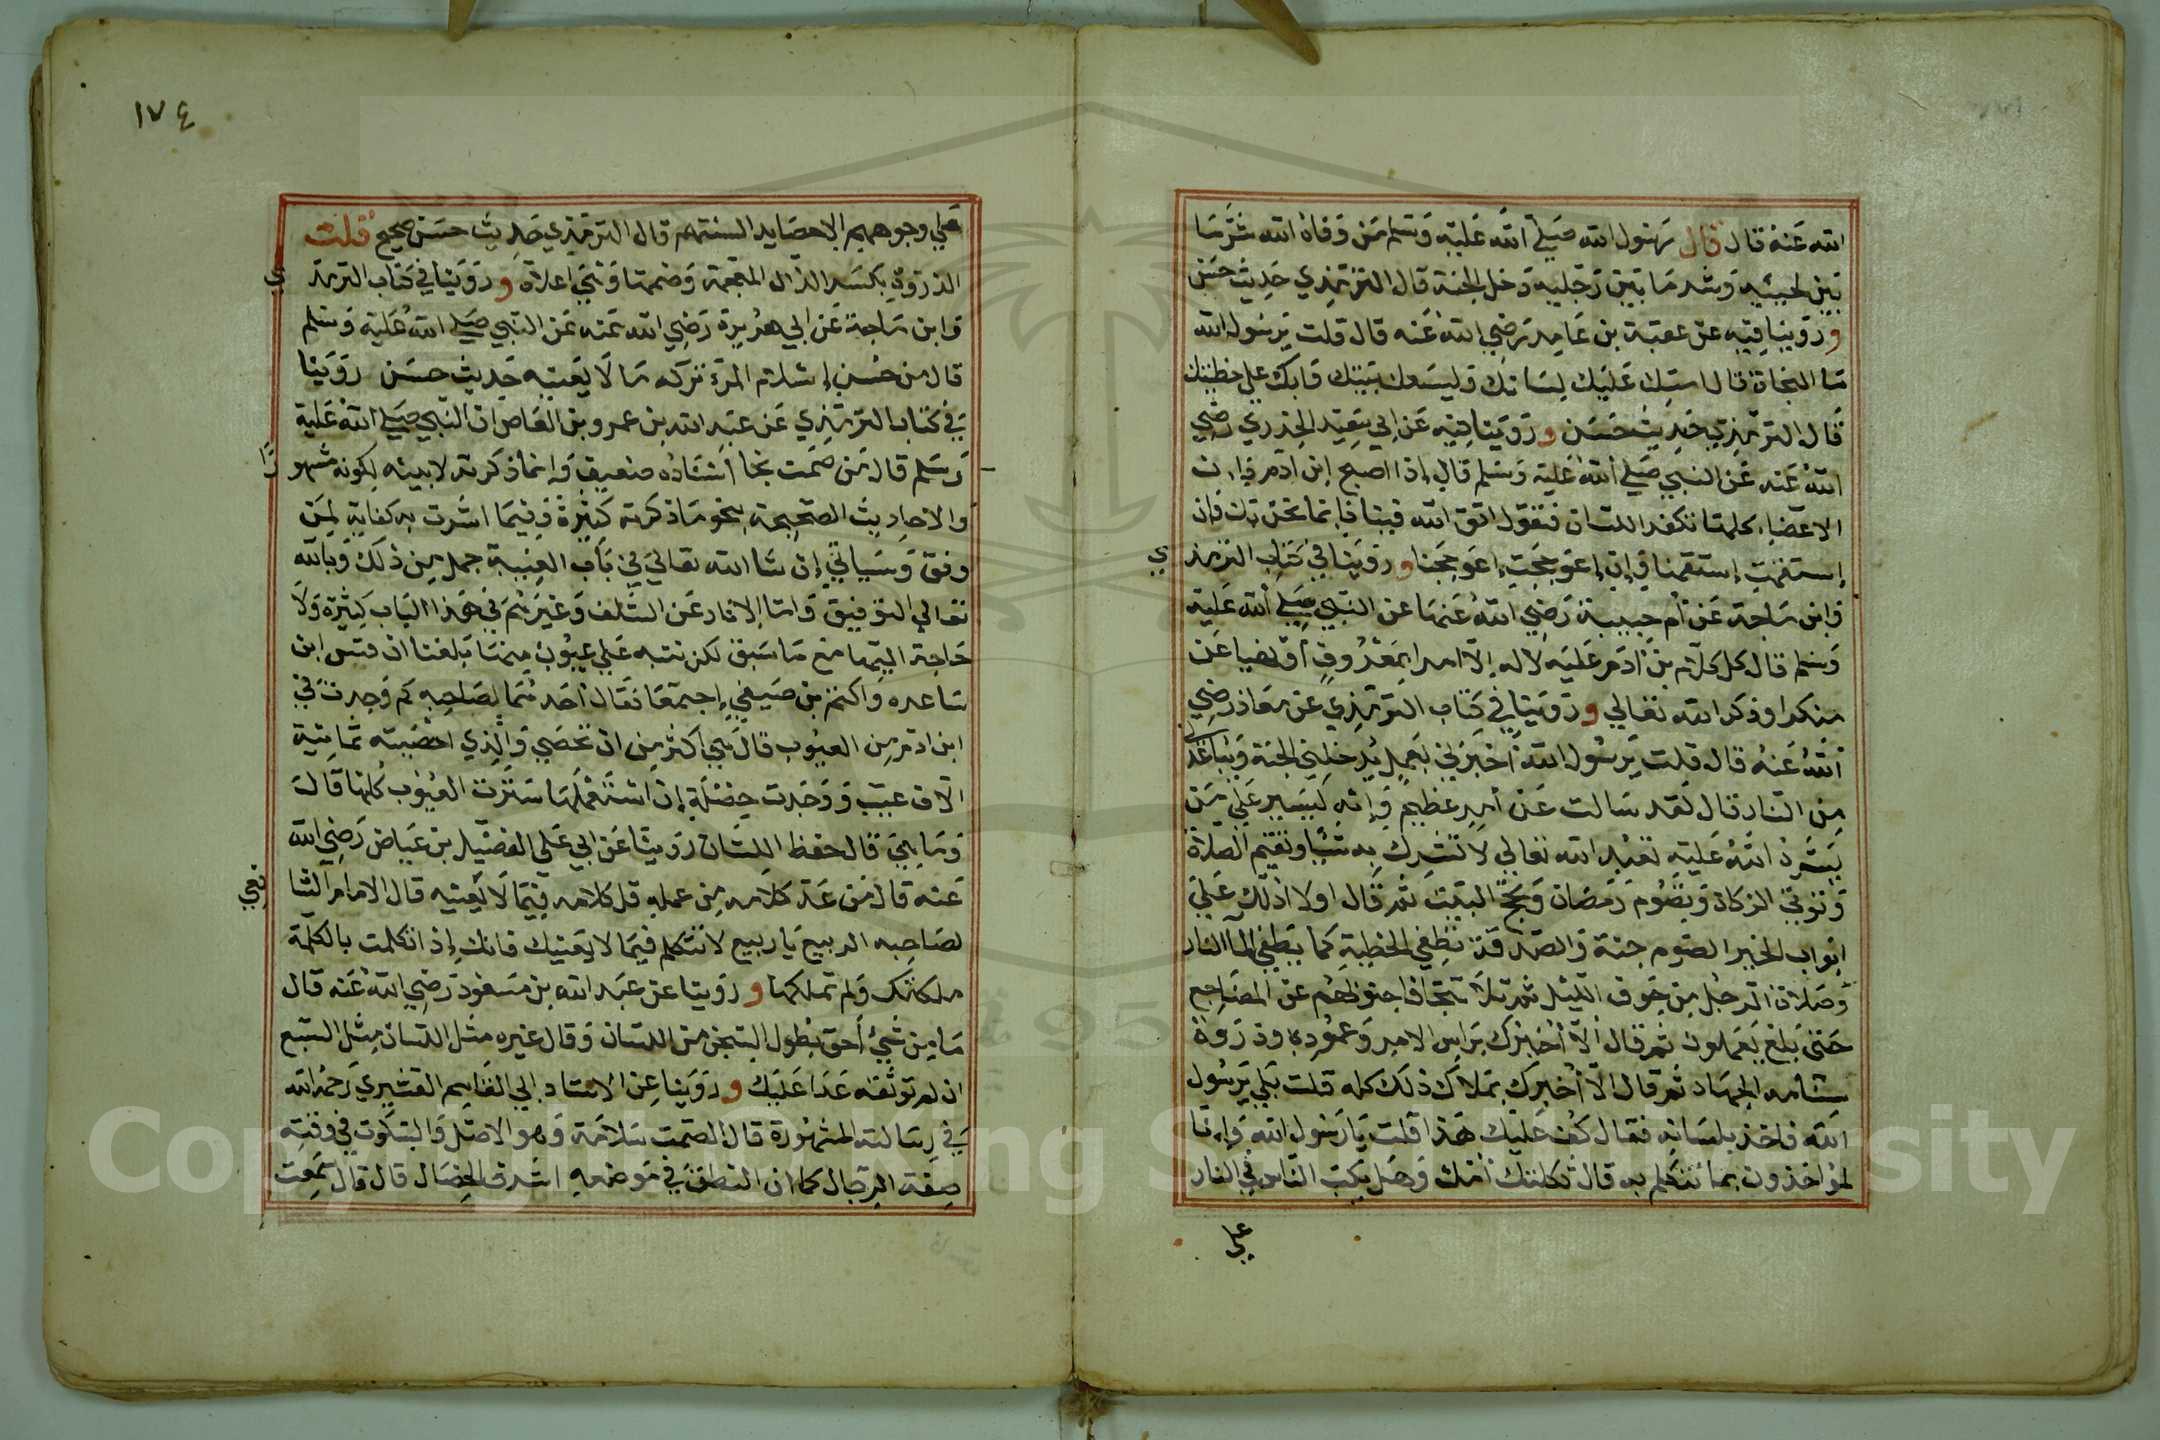 الله عنه قال قال رسول الله صلى الله عليه وسلم من وقاه الله شر ما
بين لحييه وشر ما بين رجليه دخل الجنة قال الترمذي حديث حسن
وروينا فيه عن عقبة بن عامر رضي الله عنه قال قلت يرسول الله
ما النجاة قال امسك عليك لسانك وليسعك بيتك وابك على خطيئتك
قال الترمذي حديث حسن وروينا فيه عن ابي سعيد الخدري رضي
الله عنه عن النبي صلى الله عليه وسلم قال إذا اصبح ابن ادم فان
الاعضاء كلها تكفر اللسان فتقول اتق الله فينا فإنما نحن بك فإن
إستقمت إستقمنا وإن إعوججت إعوججنا وروينا في كتاب الترمذ
ي
وابن ماجة عن أم حبيبة رضي الله عنها عن النبي صلى الله عليه
وسلم قال كل كلام بن ادم عليه لا له إلا امرا بمعروف أو نهيا عن
منكر او ذكر الله تعالي وروينا في كتاب الترمذي عن معاذ رضي
الله عنه قال قلت يرسول الله أخبرني بعمل يدخلني الجنة ويباعدني
من النار قال لقد سالت عن أمر عظيم وإنه ليسير علي من
يسره الله عليه تعبد الله تعالي لا تشرك به شيئا وتقيم الصلاة
وتوتي الزكاة وتصوم رمضان وتحج البيت ثم قال اولا ادلك علي
ابواب الخير الصوم جنة والصدقة تطفي الخطية كما يطفي الما النار
وصلاة الرجل من جوف الليل ثم تلا تتجافا جنوبهم عن المضاجع
حتى بلغ يعملون ثم قال ألا أخبرك براس الامر وعموده وذروة
سنامه الجهاد ثم قال الا أخبرك بملاك ذلك كله قلت بلي يرسول
الله فاخذ بلسانه فقال كف عليك هذا قلت يا رسول الله وإنا
لمؤاخذون بما نتكلم به قال ثكلتك أمك وهل يكب الناس في النار
علي
١٧٤
علي وجوههم الا حصايد السنتهم قال الترمذي حديث حسن صحيح قلت
الذروة بكسر الذال المعجمة وضمها وهي اعلاه وروينا في كتاب الترمذ
ي
وابن ماجة عن ابي هريرة رضي الله عنه عن النبي صلى الله عليه وسلم
قال من حسن إسلام المرء تركه ما لا يعنيه حديث حسن روينا
في كتاب الترمذي عن عبد الله بن عمرو بن العاص ان النبي صلى الله عليه
وسلم قال من صمت نجا أسناده ضعيف وإنما ذكرته لابينه لكونه مشهو
را
والاحاديث الصحيحة بنحو ما ذكرته كثيرة وفيما اشرت به كفاية لمن
وفق وسياتي إن شا الله تعالي في باب الغيبة جمل من ذلك وبالله
تعالي التوفيق واما الاثار عن السلف وغيرهم في هذا الباب كثيرة ولا
حاجة اليها مع ما سبق لكن ننبه علي عيوب منها بلغنا ان قس ابن
ساعده واكثم بن صيفي إجتمعا فقال أحدهما لصاحبه كم وجدت في
ابن ادم من العيوب قال هي اكثر من ان تحصي والذي احصيته ثمانية
الاف عيب ووجدت خصلة إن استعملها سترت العيوب كلها قال
وما هي قال حفظ اللسان روينا عن ابي علي الفضيل بن عياض رضي الله
عنه قال من عد كلامه من عمله قل كلامه فيما لا يعنيه قال الامام الشا
فعي
لصاحبه الربيع يا ربيع لا تتكلم فيما لا يعنيك فانك إذ اتكلمت بالكلمة
ملكتك ولم تملكها وروينا عن عبد الله بن مسعود رضي الله عنه قال
ما من شيء أحق بطول السجن من اللسان وقال غيره مثل اللسان مثل السبع
ان لم توثقه عدا عليك وروينا عن الاستاد ابي القاسم القشيري رحمه الله
في رسالته المشهورة قال الصمت سلامة وهو الاصل والسكوت في وقته
صفة الرجال كما ان النطق في موضعه اشرف الخصال قال قال سمعت
Copyright © King Saud University